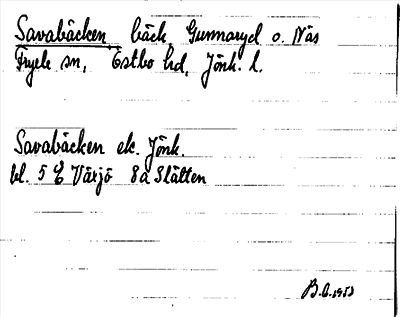 Savabäcken bäck Gunnaryd o. Näs
Fryele sn, Östbo hd, Jönk. l.
Savabäcken ek. Jönk.
bl. 5 E Växjö 8a Slätten
B.G. 1953